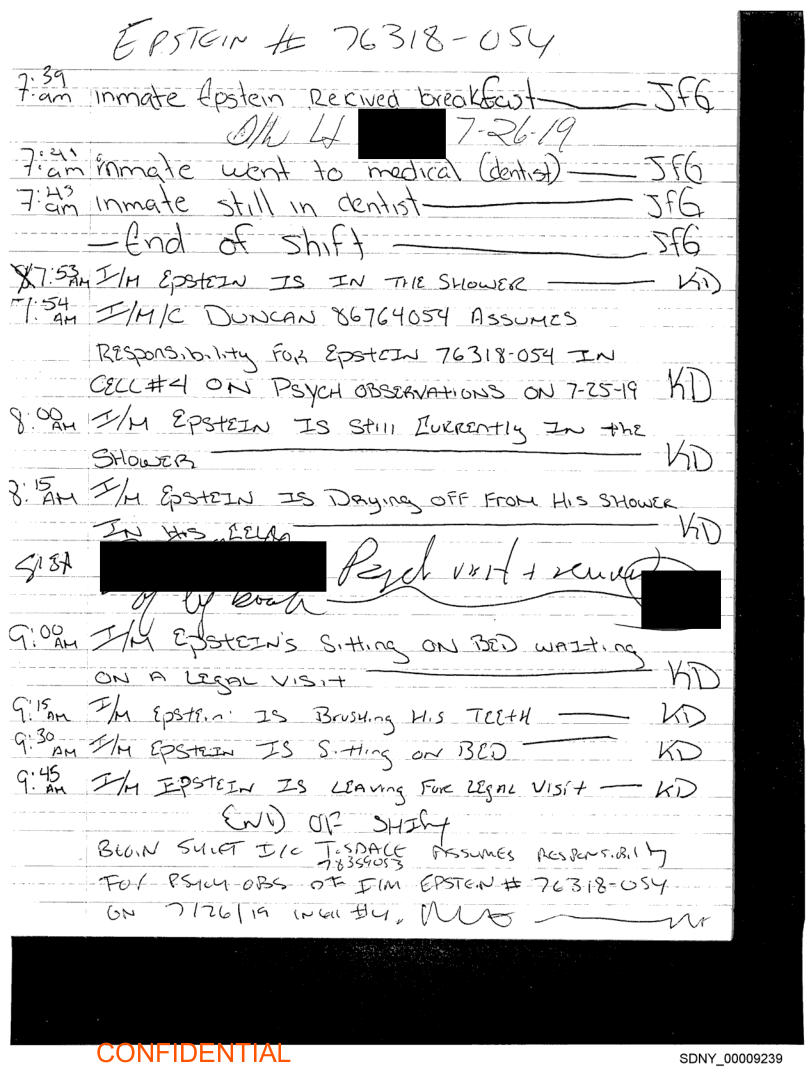 EPSTEIN # 76318-054
7:39 am inmate Epstein Recived breakfast JfG
7-26-19
7:41 am inmate went to medical (dentist) JfG
7:43 am inmate still in dentist JfG
End of Shift JfG
7:53 AM I/M EPSTEIN IS IN THE SHOWER KD
7:54 AM I/M/C DUNCAN 86764054 ASSUMES
RESponsibility FOR EpstEIN 76318-054 IN
CELL #4 ON PSYCH OBSERVATIONS ON 7-25-19 KD
8:00 AM I/M EPSTEIN IS Still CURRENtly IN the
SHOWER KD
8:15 AM I/M EPSTEIN IS DRying OFF FROM HIS SHOWER
IN HIS CELL KD
Psych visit +
9:00 AM I/M EPSTEIN'S Sitting ON BED WAITing
ON A LEGAL VISIT KD
9:15 AM I/M EpstEin IS BRUSHing HIS TEETH KD
9:30 AM I/M EPSTEIN IS Sitting ON BED KD
9:45 AM I/M EPSTEIN IS LEAving FOR LEgAL VISIt KD
END OF SHIFt
BEGIN SHIFT I/C TISDALE ASSUMES RESPONSIBILITY
78359053
FOR PSYCH OBS OF I/M EPSTEIN # 76318-054
ON 7/26/19 IN Cell #4.
CONFIDENTIAL
SDNY_00009239